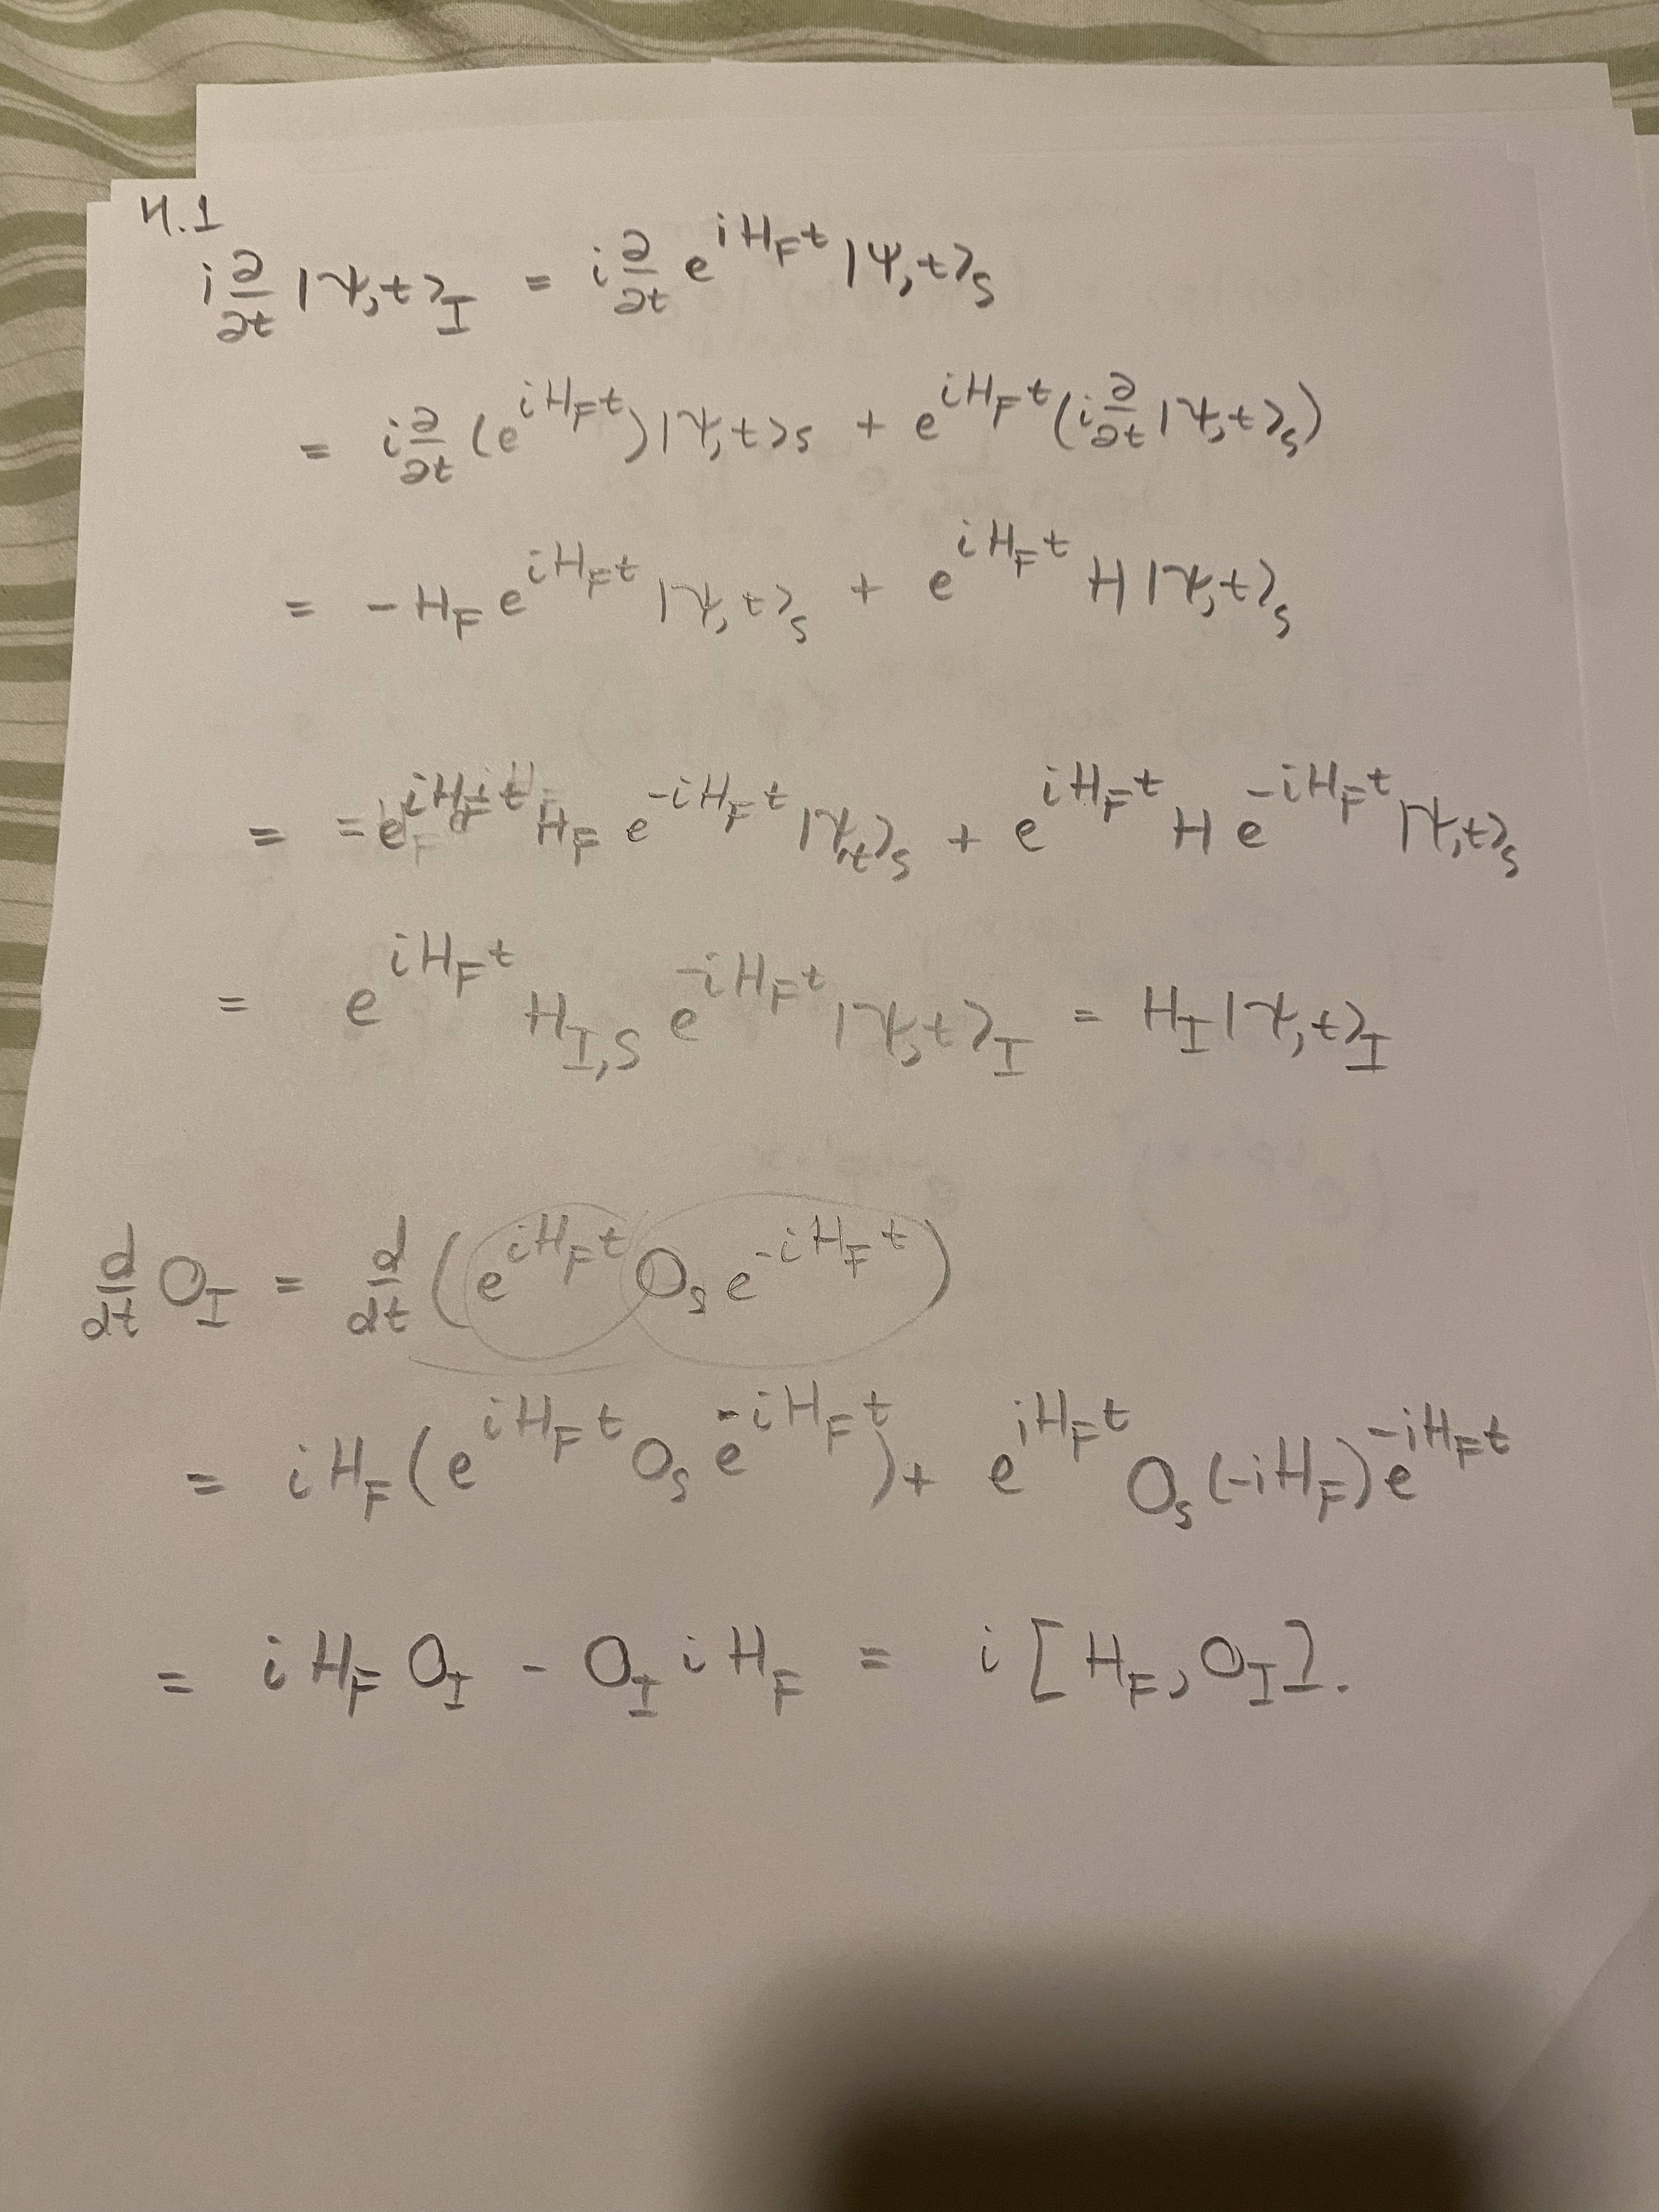 4.1
i ∂/∂t |ψ,t>_I = i ∂/∂t e^{iH_F t} |ψ,t>_S
= i ∂/∂t (e^{iH_F t}) |ψ,t>_S + e^{iH_F t} (i ∂/∂t |ψ,t>_S)
= -H_F e^{iH_F t} |ψ,t>_S + e^{iH_F t} H |ψ,t>_S
= -e^{iH_F t} H_F e^{-iH_F t} |ψ,t>_S + e^{iH_F t} H e^{-iH_F t} |ψ,t>_S
= e^{iH_F t} H_{I,S} e^{-iH_F t} |ψ,t>_I = H_I |ψ,t>_I
d/dt O_I = d/dt (e^{iH_F t} O_S e^{-iH_F t})
= iH_F (e^{iH_F t} O_S e^{-iH_F t}) + e^{iH_F t} O_S (-iH_F) e^{-iH_F t}
= i H_F O_I - O_I i H_F = i [H_F, O_I].